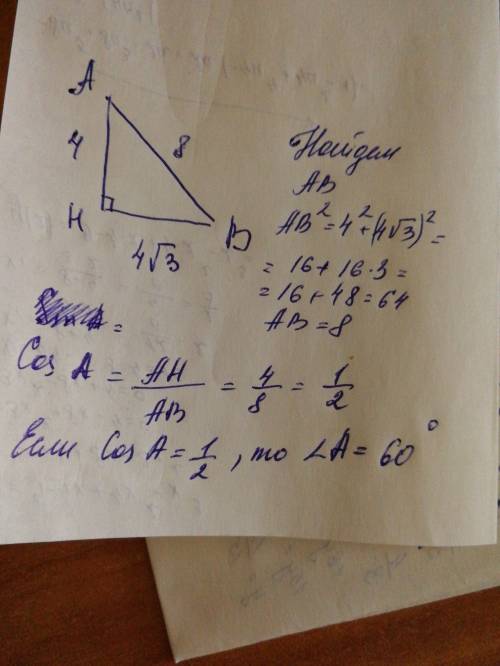 A
4
8
H
B
4√3
Найдем
AB
AB² = 4² + (4√3)² =
= 16 + 16·3 =
= 16 + 48 = 64
AB = 8
=
Cos A = AH/AB = 4/8 = 1/2
Если Cos A = 1/2, то ∠A = 60°